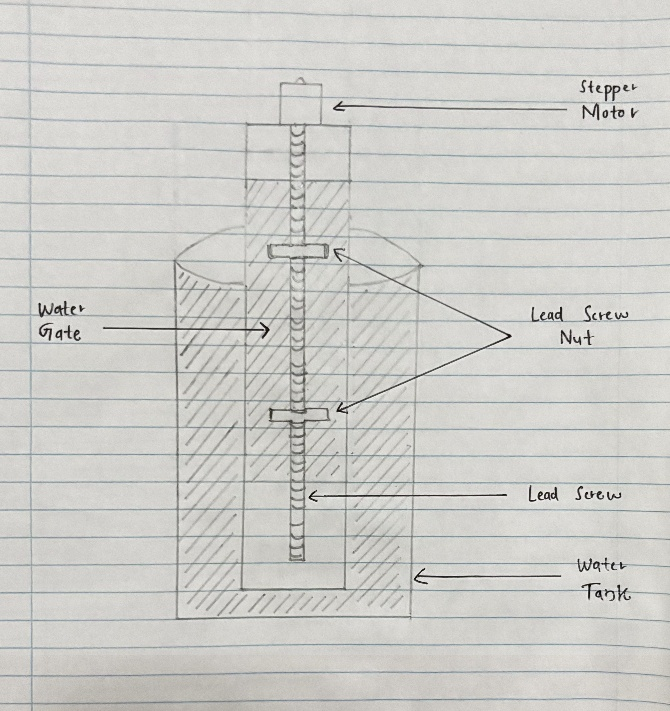 Stepper
Motor
Water
Gate
Lead Screw
Nut
Lead Screw
Water
Tank